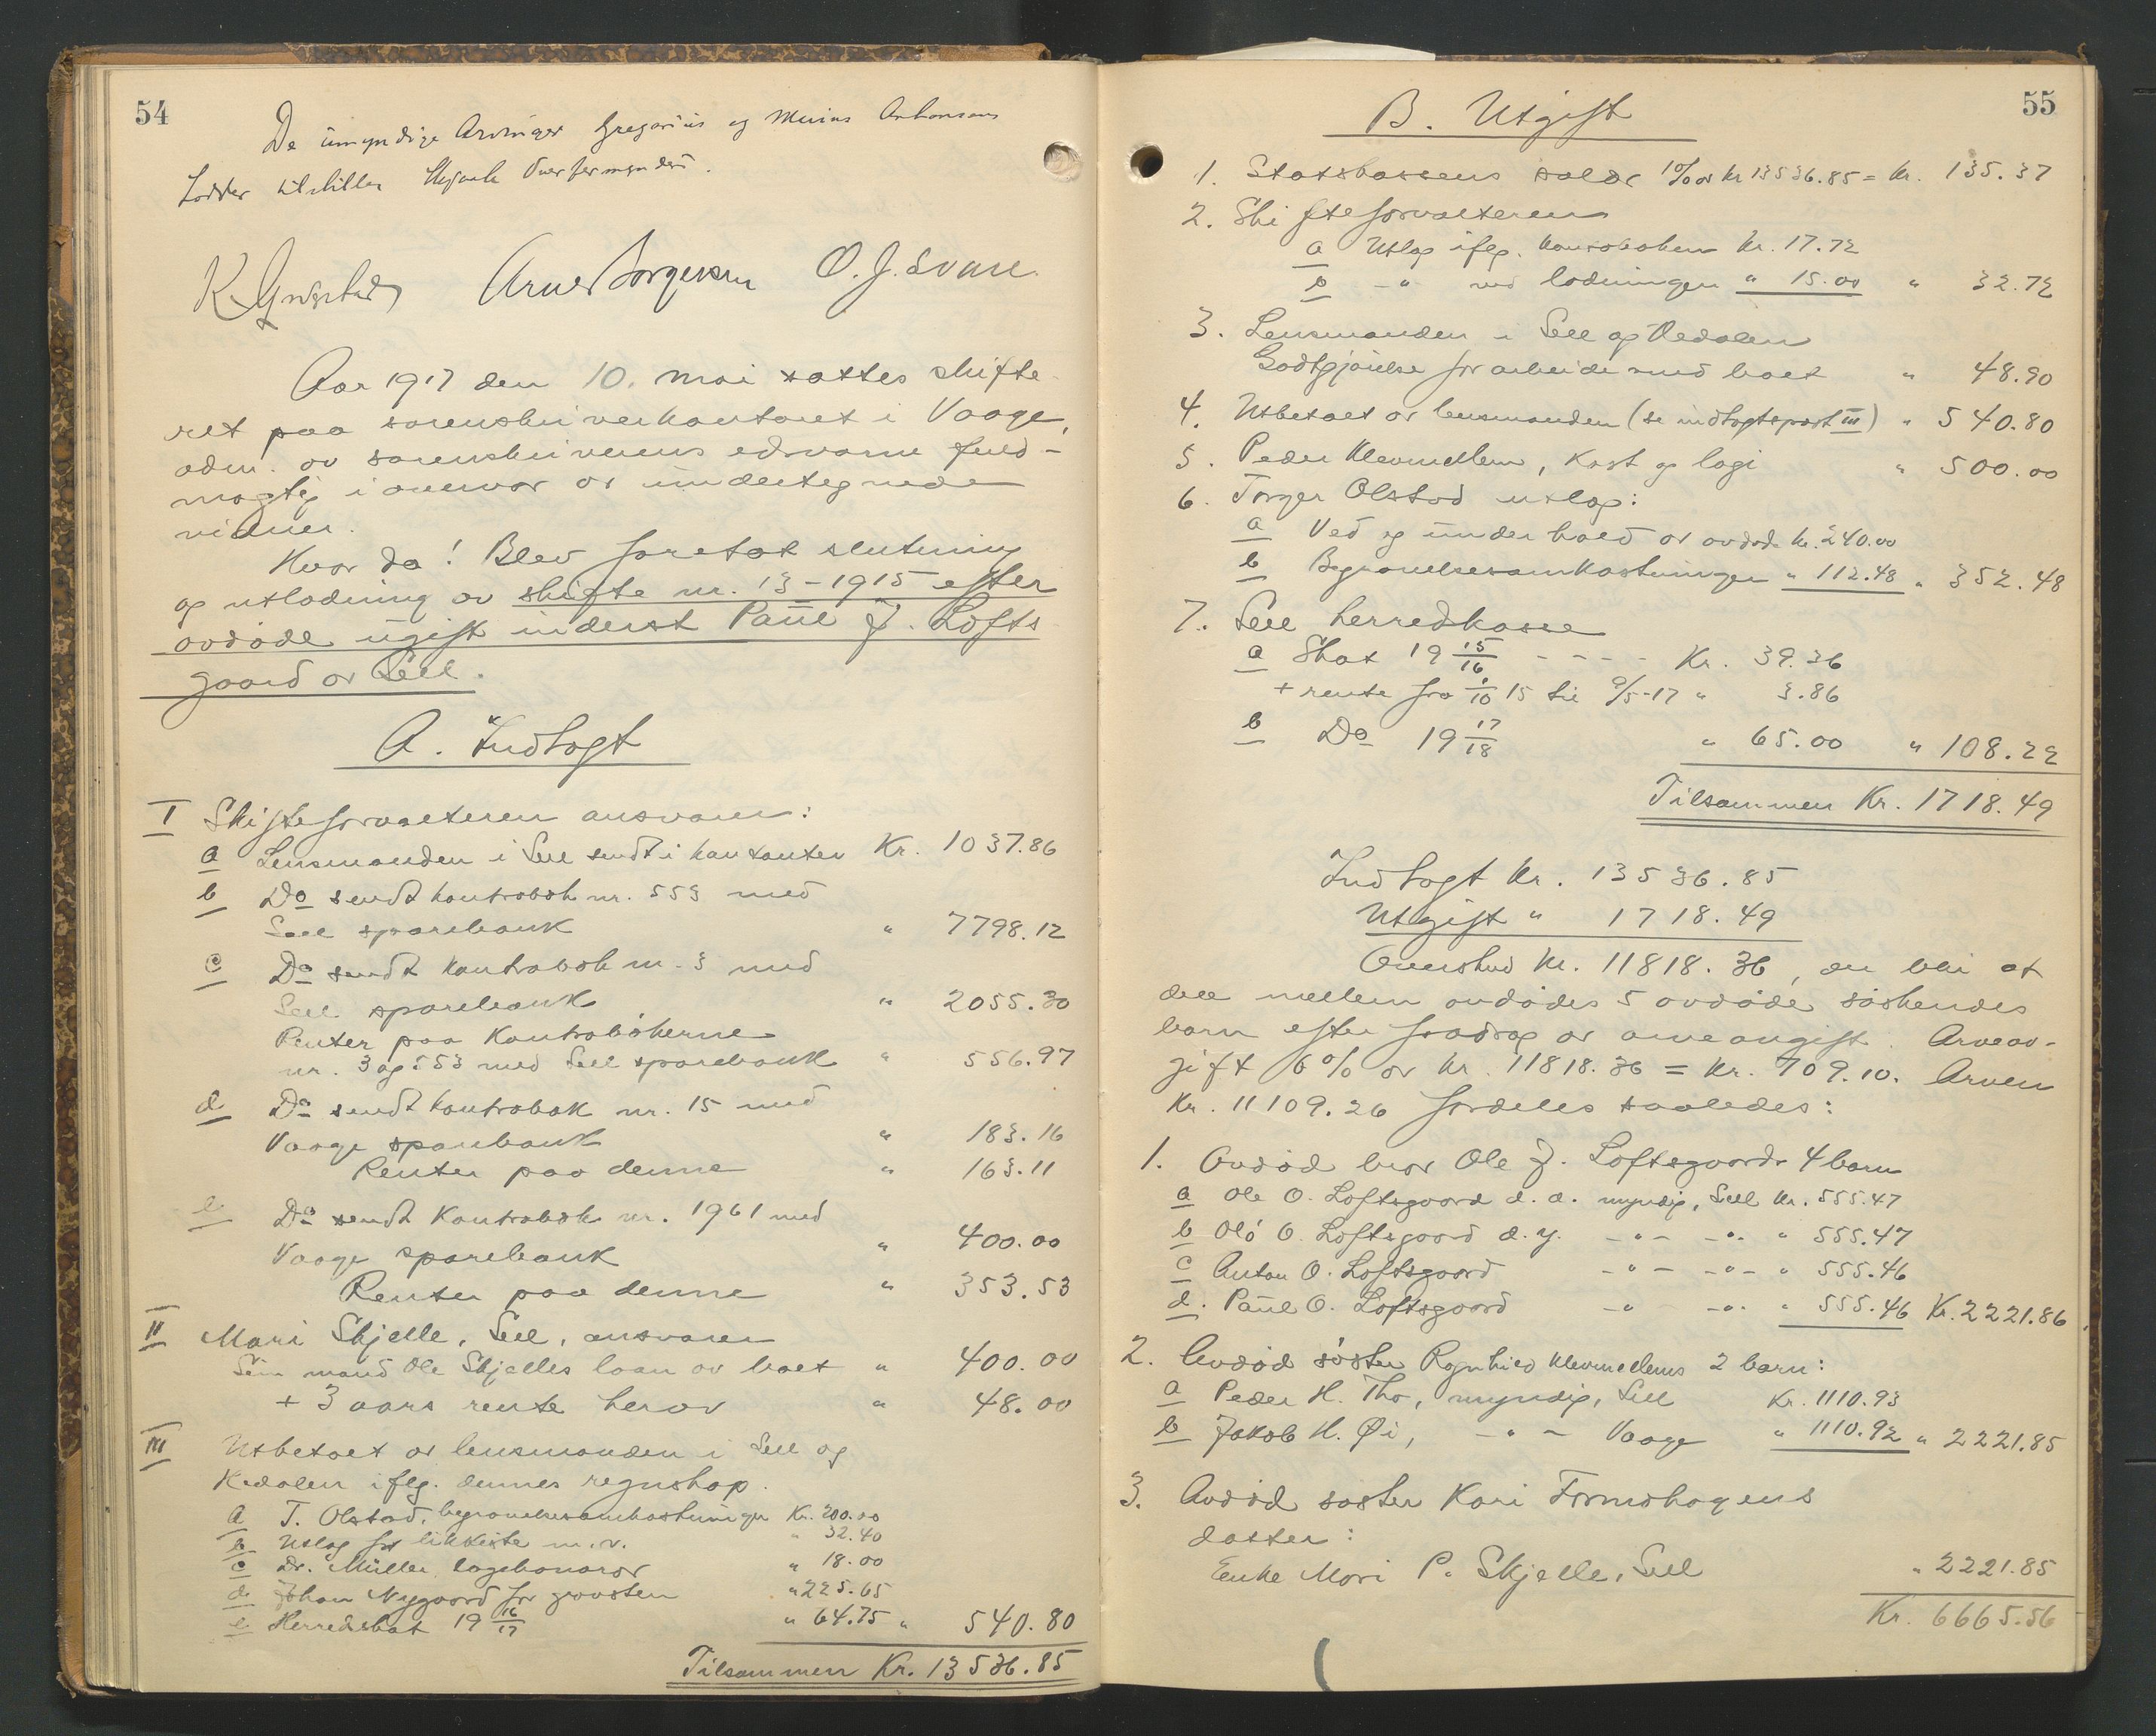 54
De umyndige Arvinger Gregorius og Marius Antonsens
Lodder tilstilles Overformynderi.
Arne Jorgensen O. J. Svare.
Aar 1917 den 10. mai sattes skifte-
ret paa sorenskriverkontoret i Vaage,
adm. av sorenskriverens edsvorne fuld-
mægtig i overvær av undertegnede
vidner.
Hvor da! Blev foretat slutning
og utlodning av skifte nr. 13-1915 efter
avdøde ugift inderst Paul J. Lofts
gaard av Sell.
A. Indtægt
I Skifteforvalteren ansvarer:
a Lensmanden i Sell sendt i kontanter Kr. 1037.86
b Do sendt kontrabok nr. 553 med
Sell sparebank " 7798.12
c Do sendt kontrabok nr. 3 med
Sell sparebank " 2055.30
Renter paa Kontrabøkerne
nr. 3 og 553 med Sell sparebank " 556.97
d Do sendt kontrabok nr. 15 med
Vaage sparebank " 183.16
Renter paa denne " 163.11
e Do sendt Kontrabok nr. 1961 med
Vaage sparebank " 400.00
Renter paa denne " 353.53
II Mari Skjelle, Sell, ansvarer
Sin mand Ole Skjelles laan av boet " 400.00
+ 3 aars rente herav " 48.00
III Utbetalt av lensmanden i Sell og
Hedalen iflg. dennes regnskap.
a T. Olstad, begravelsesomkostninger Kr. 200.00
b Utlæg for likkiste m.v. " 32.40
c Dr. Müller lægehonorar " 18.00
d Johan Nygaard for gravsten " 225.65
e Herredskat 19 16/17 " 64.75 " 540.80
Tilsammen Kr. 13536.85
55
B. Utgift
1. Statskassens salær 1% av kr 13536.85 = kr. 135.37
2. Skifteforvalteren
a Utlæg iflg. kontraboken Kr. 17.72
b -"- ved lodningen " 15.00 " 32.72
3. Lensmanden i Sell og Hedalen
Godtgjørelse for arbeide med boet " 48.90
4. Utbetalt av lensmanden (se indtægtspost III) " 540.80
5. Peder Klevmellem, Kost og logi " 500.00
6. Torger Olstad utlæg:
a Ved og underhold av avdøde kr. 240.00
b Begravelsesomkostninger " 112.48 " 352.48
7. Sell herredkasse
a Skat 19 15/16 - - - - Kr. 39.36
+ rente fra 1/10 15 til 9/5-17 " 3.86
b Do 19 17/18 " 65.00 " 108.22
Tilsammen Kr. 1718.49
Indtægt Kr. 13536.85
Utgift " 1718.49
Overskud kr. 11818.36, der blir at
dele mellem avdødes 5 avdøde søskendes
barn efter fradrag av arveavgift. Arveav-
gift 6% av kr. 11818.36 = kr. 709.10. Arven
Kr. 11109.26 fordeles saaledes:
1. Avdød bror Ole J. Loftsgaards 4 barn
a Ole O. Loftsgaard d. æ. myndig, Sell Kr. 555.47
b Ole O. Loftsgaard d. y. -"- -"- " 555.47
c Anton O. Loftsgaard -"- -"- " 555.46
d. Paul O. Loftsgaard -"- -"- " 555.46 Kr. 2221.86
2. Avdød søster Ragnhild Klevmellems 2 barn:
a Peder H. Tho, myndig, Sell Kr. 1110.93
b Jakob H. Øi, -"- Vaage " 1110.92 " 2221.85
3. Avdød søster Kari Formohagens
datter:
Enke Mari P. Skjelle, Sell " 2221.85
Kr. 6665.56